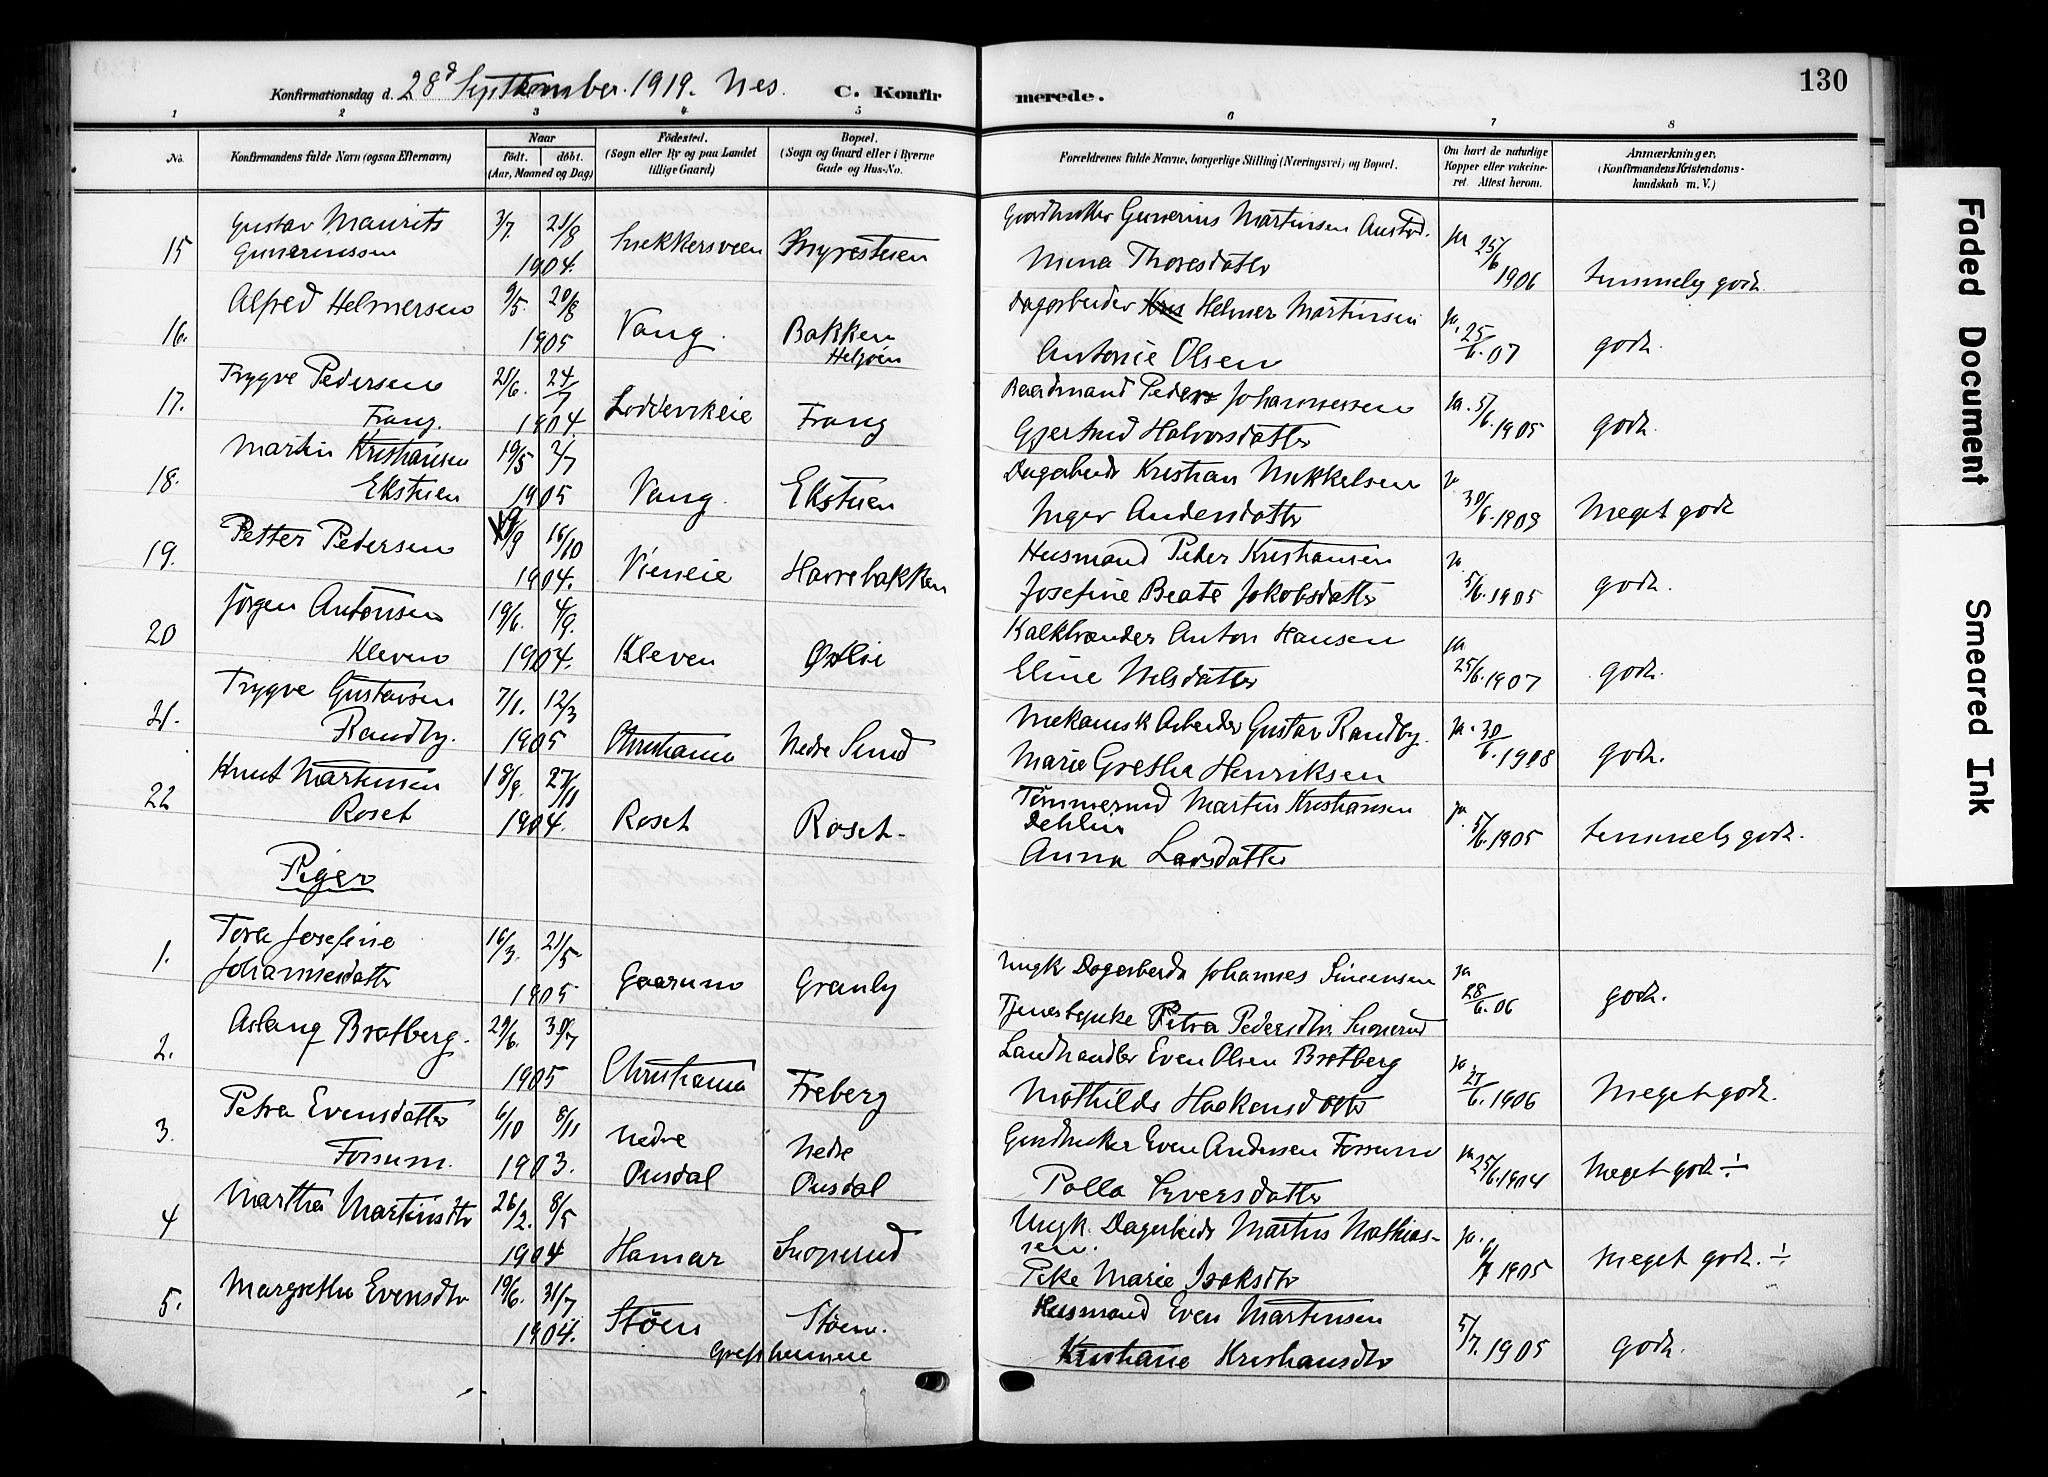 130
Konfirmationsdag d. 28d September. 1919. Nes. C. Konfirmerede.
1 2 3 4 5 6 7 8
No. Konfirmandens fulde Navn (ogsaa Efternavn) Naar født. døbt. (Aar, Maaned og Dag) Fødested. (Sogn eller By og paa Landet tillige Gaard) Bopæl. (Sogn og Gaard eller i Byerne Gade og Hus-No. Forældrenes fulde Navne, borgerlige Stilling (Næringsvei) og Bopæl. Om havt de naturlige Kopper eller vakcineret. Attest herom. Anmærkninger. (Konfirmandens Kristendomskundskab m. V.)
15 Gustav Maurits Gunerinssen 3/7. 21/8 1904. Snekkersveen Myrestuen Gunerius Martinsen
Mina Thoresdatter ja 25/6 1906 temmelig godt.
16. Alfred Helmersen 9/5. 20/8 1905 Vang. Bakken Dagarbeider Helmer Martinsen
Antonie Olsen ja. 25/6. 07 godt.
17. Trygve Pedersen Frang. 21/6. 24/7 1904. Frang Peder Johannessen
Gjertrud Halvorsdatter ja. 5/6. 1905 godt.
18. Martin Kristiansen Ekstuen 19/5 2/7 1905 Vang. Ekstuen Kristian Mikkelsen
Inger Andersdatter 30/6. 1909 Meget godt
19. Petter Pedersen 16/10 1904. Harrebakken Husmand Peder Kristiansen
Josefine Beate Jakobsdatter ja 5/6. 1905 godt.
20 Jørgen Antonsen Kleven 19/6. 4/9. 1904. Kleven Østlie Kalkbrænder Anton Hansen
Eline Nilsdatter ja 25/6. 1907 godt.
21. Trygve Gustavsen Randby. 7/1. 12/3 1905 Christiania Nedre Sund Mekanisk Arbeider Gustav Randby.
Marie Grethe Henriksen ja. 30/6. 1908 godt.
22 Knut Martinsen Roset 18/9. 27/11 1904. Roset Roset. Martin Kristiansen Dehlin
Anna Larsdatter ja. 5/6. 1905 temmelig godt.
Piger
1. Tora Josefine Johannesdatter 16/3. 21/5 1905 Gaarum Granby Ungk Dagarbeider Johannes Simensen
Petra Pedersdtr Snoperud ja 28/6. 06 godt.
2. Aslaug Bratberg. 29/6. 30/7 1905 Christiania Freberg Landhandler Even Olsen Bratberg
Mathilde Haakensdatter ja 27/6. 1906 Meget godt.
3. Petra Evensdatter Forsum. 6/10 8/11 1903. Nedre Pusdal Nedre Pusdal Even Andersen Forsum
Polla Syversdatter ja 25/6. 1904 Meget godt ÷
4 Martha Martinsdtr 26/2. 8/5 1904 Hamar Snoperud Ungk. Dagarbeider Martin Mathiassen.
Marie Isaksdtr ja. 1905 meget godt. ÷
5. Margrethe Evensdtr 19/6. 31/7 1904. Støen Støen. Husmand Even Martinsen
Kristiane Kristiansdtr 5/7. 1905 godt.
Faded Document
Smeared Ink